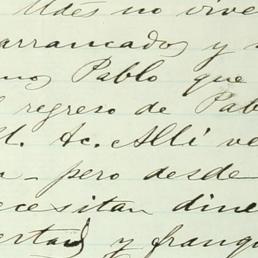 Udes no vive
arrancados y
mos Pablo que
l regreso de Pab
M. Ac. Allí ve
pero desde
ecesitan dine
ertad y franq